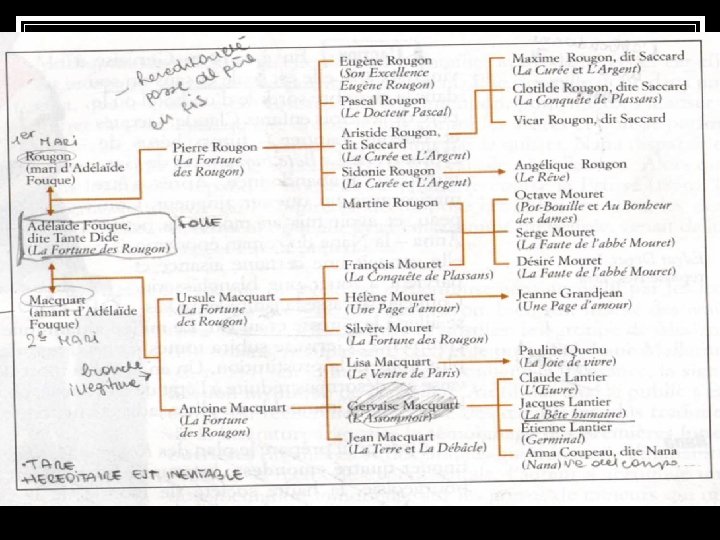 hereditarieté
passe del père
en fis
1er MARi
Rougon
(mari d'Adélaïde
Fouque)
Adélaïde Fouque,
dite Tante Dide
(La Fortune des Rougon)
FOLLE
Macquart
(amant d'Adélaïde
Fouque)
2è MARi
branche
illegitime
• TARE
HEREDITAIRE EST INEVITABLE
Pierre Rougon
(La Fortune
des Rougon)
Ursule Macquart
(La Fortune
des Rougon)
Antoine Macquart
(La Fortune
des Rougon)
Eugène Rougon
(Son Excellence
Eugène Rougon)
Pascal Rougon
(Le Docteur Pascal)
Aristide Rougon,
dit Saccard
(La Curée et L'Argent)
Sidonie Rougon
(La Curée et L'Argent)
Martine Rougon
François Mouret
(La Conquête de Plassans)
Hélène Mouret
(Une Page d'amour)
Silvère Mouret
(La Fortune des Rougon)
Lisa Macquart
(Le Ventre de Paris)
Gervaise Macquart
(L'Assommoir)
Jean Macquart
(La Terre et La Débâcle)
Maxime Rougon, dit Saccard
(La Curée et L'Argent)
Clotilde Rougon, dite Saccard
(La Conquête de Plassans)
Vicar Rougon, dit Saccard
Angélique Rougon
(Le Rêve)
Octave Mouret
(Pot-Bouille et Au Bonheur
des dames)
Serge Mouret
(La Faute de l'abbé Mouret)
Désiré Mouret
(La Faute de l'abbé Mouret)
Jeanne Grandjean
(Une Page d'amour)
Pauline Quenu
(La Joie de vivre)
Claude Lantier
(L'Œuvre)
Jacques Lantier
(La Bête humaine)
Étienne Lantier
(Germinal)
Anna Coupeau, dite Nana
(Nana)